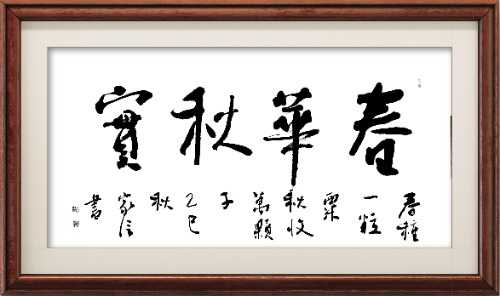 春華秋實
春種
一粒
粟
秋收
萬顆
子
乙巳
秋
家信
書